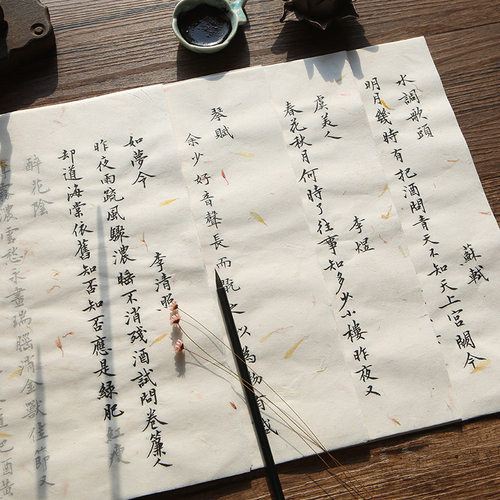 水調歌頭
蘇軾
明月幾時有把酒問青天不知天上宮闕今
虞美人
李煜
春花秋月何時了往事知多少小樓昨夜又
琴賦
余少好音聲長而翫之以為物有盛
如夢令
李清照
昨夜雨疏風驟濃睡不消殘酒試問卷簾人
却道海棠依舊知否知否應是綠肥紅瘦
醉花陰
霧濃雲愁永晝瑞腦消金獸佳節又
把酒黃